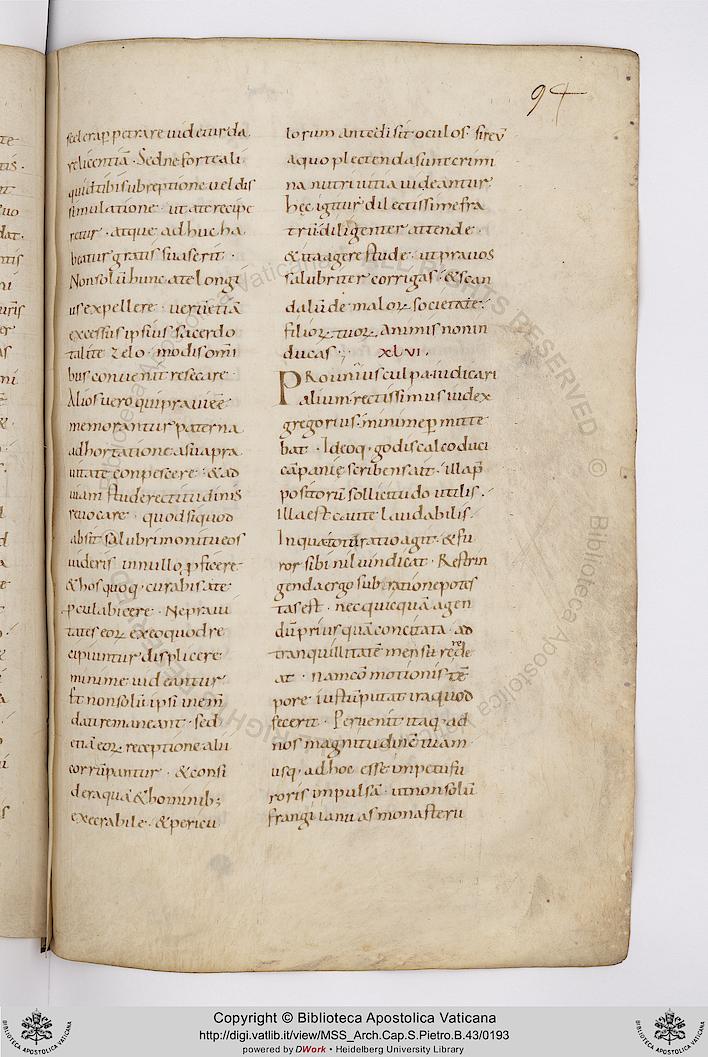 94
scelera p̱petrare uideiurda
relicentiā · Sed ne forte ali
quid tibi subreptione uel dis
simulatione · ut a te recipe
retur · atque adhuc ha
beatur gratis suaserit ·
Non solū hunc a te longi
us expellere · uerū etiā
excessus ipsius sacerdo
tali te zelo · modis omni
bus conuenit resecare ·
Alios uero qui praui ēē
memorantur paterna
adhortatione a sua pra
uitate conpescere · & ad
uiam stude rectitudinis
reuocare · quod si quod
absit salubri monitu eos
uideris in nullo ꝓficere
& hos quoq · curabis a te
ꝓcul abicere · Ne praui
tates eoꝝ ex eo quod re
cipiuntur displicere
minime uideantur
Et non solū ipsi inem̄
dati remaneant · sed
etiā eoꝝ receptione alii
corrūpantur · & consi
dera quā & hominib;
execrabile · & pericu
losum ante di̅ sit oculos · si reū
a quo plectenda sunt crimi
na nutri uitia uideantur ·
hęc igitur dilectissime fra
trū diligenter attende ·
& ita agere stude · ut prauos
salubriter corrigas · & scan
dalū de maloꝝ societate ·
filioꝝ tuoꝝ animis non in
ducas · XLVI ·
PRO unius culpa iudicari
alium · rectissimus iudex
gregorius · minime p̱mitte
bat · Ideoq · godiscalco duci
cāpanię scribens ait · illa p̄
positorū sollicitudo utilis ·
illa est caute laudabilis ·
In qua totū ratio agit · & fu
ror sibi nil uindicat · Restrin
genda ergo sub ratione potes
tas est · nec quicquā agen
dū prius quā concitata · ad
tranquillitatē mens rede
re
at · nam cōmotionis tē
pore iustū putat ira quod
fecerit · Peruenit itaq · ad
nos magnitudinē tuam
usq · ad hoc esse impetu fu
roris impulsā · ut non solū
frangi ianuas monasterii
Copyright © Biblioteca Apostolica Vaticana
http://digi.vatlib.it/view/MSS_Arch.Cap.S.Pietro.B.43/0193
powered by DWork • Heidelberg University Library